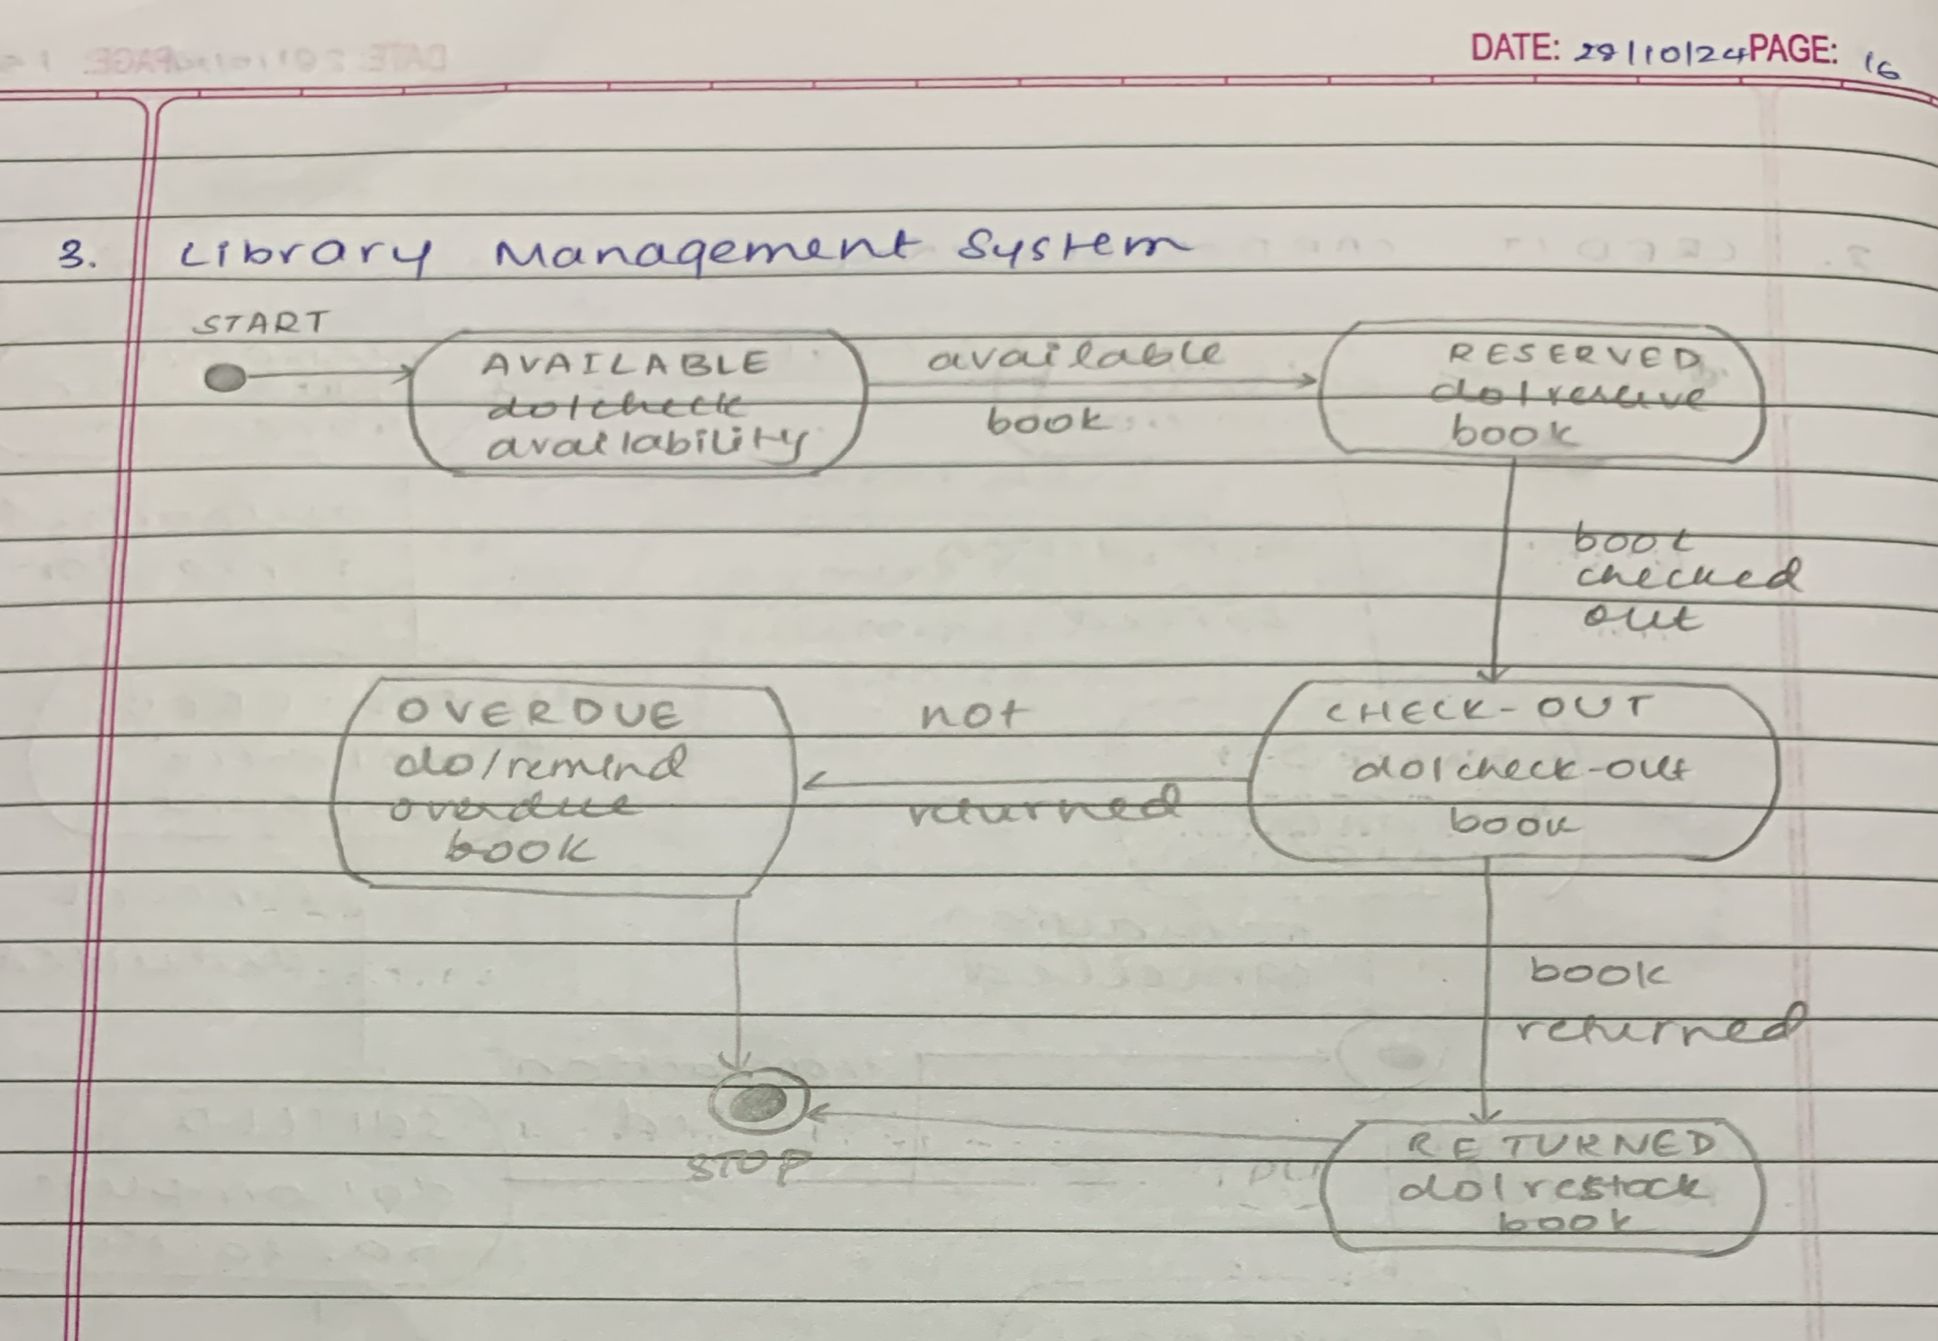 DATE: 28/10/24 PAGE: 16
3. Library Management System
START
AVAILABLE
do/check
availability
available
book
RESERVED
do/reserve
book
book
checked
out
OVERDUE
do/remind
overdue
book
not
returned
CHECK-OUT
do/check-out
book
book
returned
STOP
RETURNED
do/restock
book